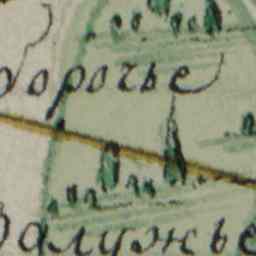 борочье
Залужье